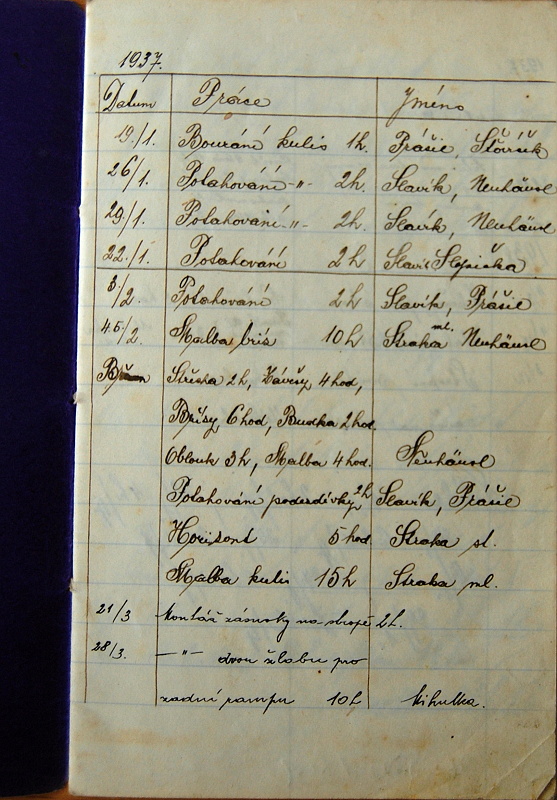 1937.
Datum Práce Jméno
19./1. Bourání kulis 1h. Prášil,
26/1. Potahování -"- 2h. Slavík, Neuhäusl
29/1. Potahování -"- 2h. Slavík, Neuhäusl
22./1. Potahování 2h Slavík Slepička
3./2. Potahování 2h Slavík, Prášil
4.5./2. Malba bris 10h Straka ml. Neuhäusl
Střecha 2h, Závěsy 4hod,
Brisy, 6hod, Budka 2hod.
Oblouk 3h, Malba 4hod. Neuhäusl
Potahování podezdívky 2h Slavík, Prášil
Horizont 5hod Straka st.
Malba kulis 15h Straka ml.
21/3 Montáž zásuvky na stropě 2h.
28/3. -"- dvou žlabu pro
zadní rampu 10h Mihulka.